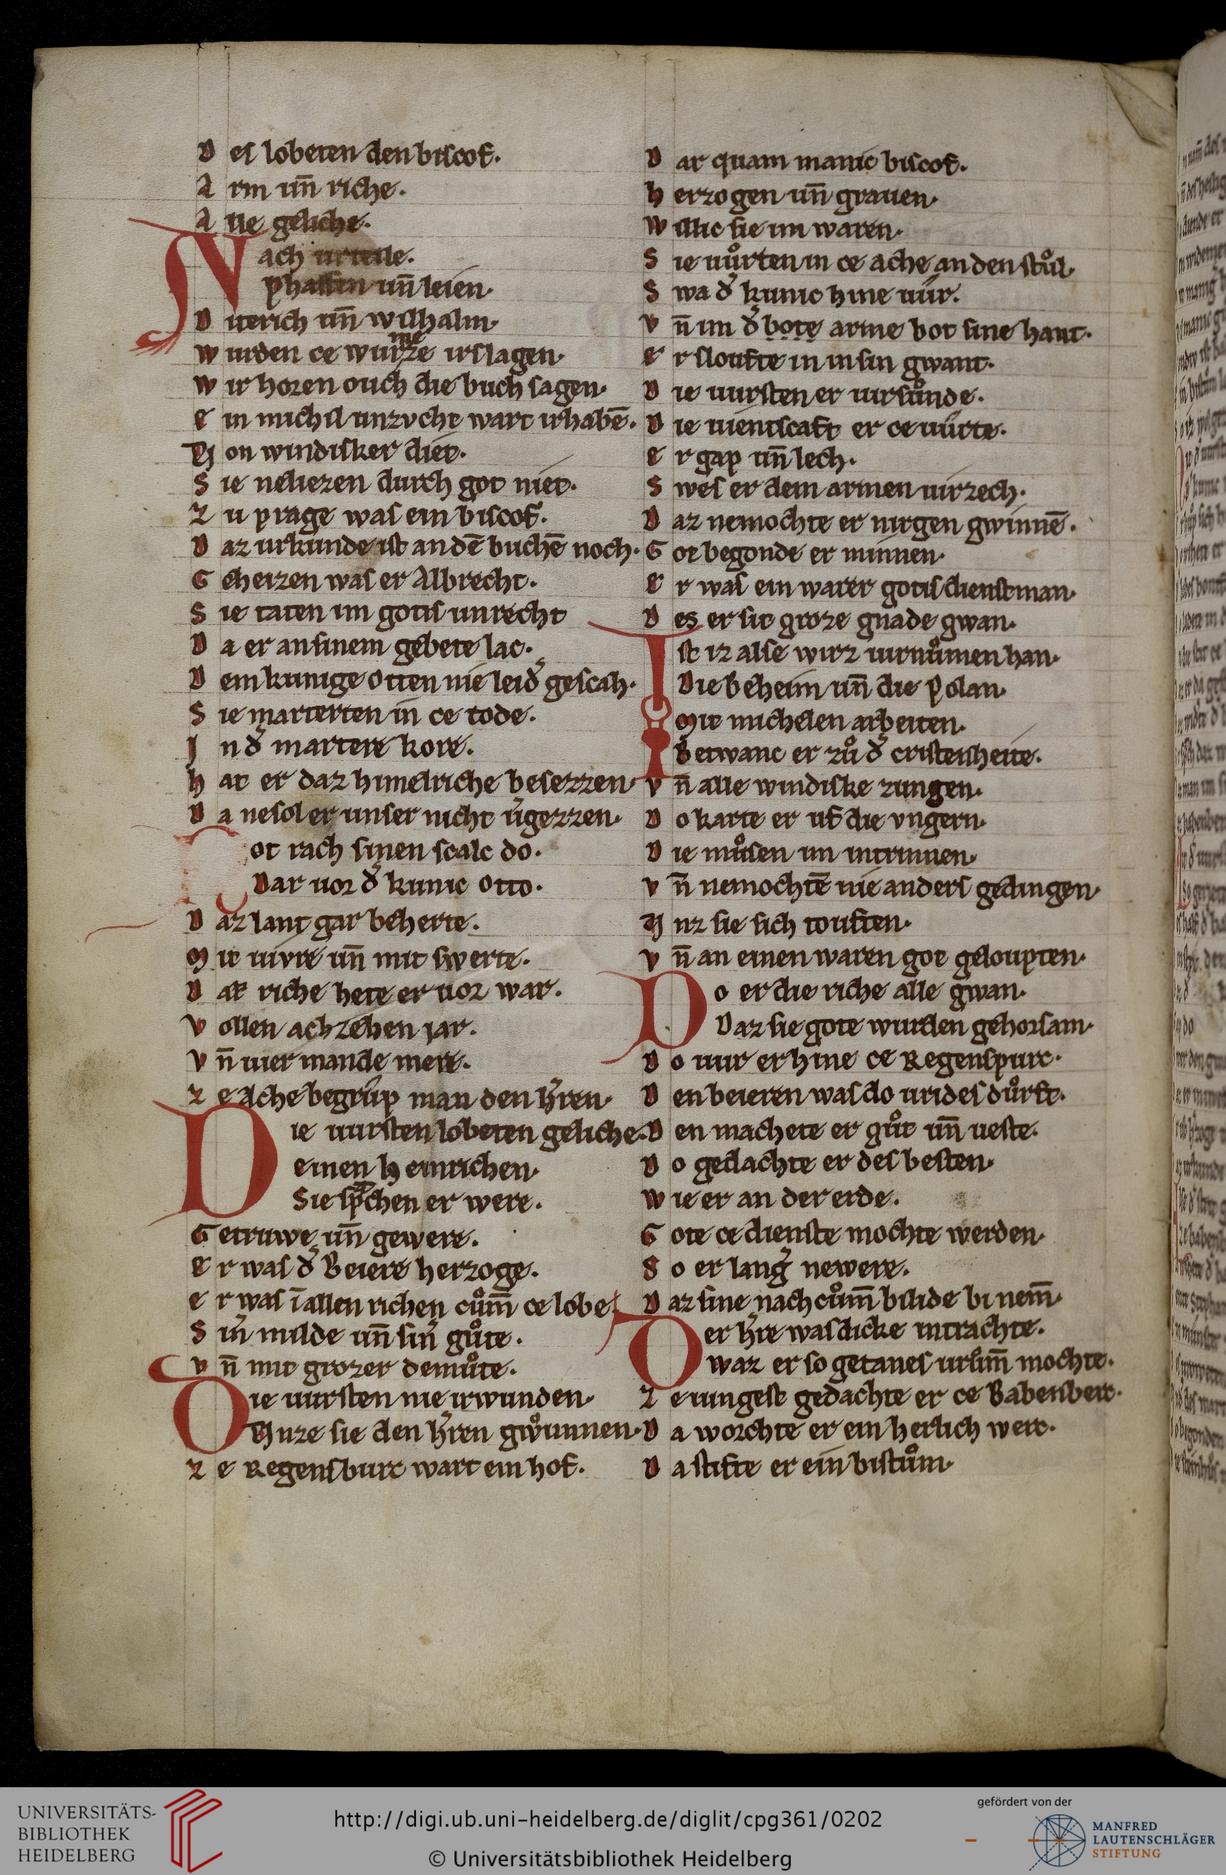 D es lobeten den biscof.
A rm uñ riche.
A lle geliche.
Nach urteile.
phaffen uñ leien.
D iterich uñ wilhalm.
w urden ce wurmze irslagen.
w ir horen ouch die buch sagen.
e in michil unzucht wart irhabē.
V on windisker diet.
S ie neliezen durch got niet.
z u prage was ein biscof.
D az urkunde ist an dē buchē noch.
G eheizen was er Albrecht.
S ie taten im gotis unrecht
D a er an sinem gebete lac.
D em kunige otten nie leid᾽ gescah.
S ie marterten in ce tode.
I n d᾽ martere kore.
h at er daz himelriche besezzen.
D a nesol er unser nicht u᾽gezzen.
Got rach sinen scalc do.
Dar uor d᾽ kunic otto.
D az lant gar beherte.
M it uivre uñ mit swerte.
D aʀ riche hete er uor war.
V ollen achzehen iar.
V ñ uier mande mere.
z e Ache begrup man den h᾽ren.
Die uursten lobeten geliche.
einen heinrichen.
Sie sp᾽chen er were.
G etruwe uñ gewere.
e r was d᾽ Beiere herzoge.
e r was ī allen richen cům̄ ce lobe
S in᾽ milde uñ sin᾽ gůte.
v ñ mit grozer demůte.
Die uursten nie irwunden.
Vnze sie den h᾽ren gwůnnen.
z e Regensburc wart ein hof.
D ar quam manic biscof.
h erzogen uñ grauen.
w illic sie im waren.
S ie uůrten in ce ache an den stůl.
S wa d᾽ kunic hine uůr.
v ñ im d᾽ bote arme bot sine hant.
e r sloufte in in sin gwant.
D ie uursten er uirsůnde.
D ie uientscaft er ceuůrte.
e r gap uñ lech.
S wes er dem armen uirzech.
D az nemochte er nirgen gwinnē.
G ot begonde er minnen.
e r was ein warer gotis dienstman.
D es er sit groze gnade gwan.
Ist iz alse wirz uurnůmen han.
Die beheim uñ die Polan.
mit michelen arbeiten.
Betwanc er zů d᾽ cristenheite.
v ñ alle windiske zungen.
D o karte er uf die vngern.
D ie můsen im intrinnen.
v ñ nemochtē nie anders gedingen.
V nz sie sich touften.
v ñ an einen waren got geloupten.
Do er die riche alle gwan.
Daz sie gote wurden gehorsam.
D o uur er hine ce Regenspurc.
D en beieren was do urides důrft.
D en machete er gůt uñ ueste.
D o gedachte er des besten.
w ie er an der erde.
G ote ce dienste mochte werden.
S o er lang᾽ newere.
D az sine nachcům̄ bilide bi nem̄.
Der h᾽re was dicke intrachte.
waz er so getanes urům̄ mochte.
z e iungest gedachte er ce Babenberc.
D a worchte er ein herlich werc.
D a stifte er ein bistům.
UNIVERSITÄTS-
BIBLIOTHEK
HEIDELBERG
http://digi.ub.uni-heidelberg.de/diglit/cpg361/0202
© Universitätsbibliothek Heidelberg
gefördert von der
MANFRED
LAUTENSCHLÄGER
STIFTUNG